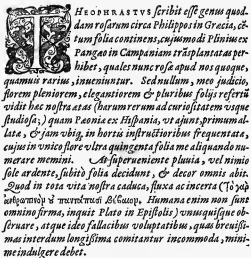 THEOPHRASTVS scribit esse genus quod
dam rosarum circa Philippos in Græcia, cē
tum folia continens, cujusmodi Plinius ex
Pangæo in Campaniam trasplantatas per
hibet, quales nunc rosæ apud nos quoque,
quamuis rarius, inveniuntur. Sed nullum, meo judicio,
florem pleniorem, elegantiorem & pluribus folijs refertū
vidit hæc nostra ætas (harum rerum ad curiositatem vsque
studiosa;) quam Pæonia ex Hispania, vt ajunt, primum al
lata, & jam vbiq, in hortis instructioribus frequentata,
cujus in vnico flore vltra quingenta folia me aliquando nu
merare memini. At superueniente pluvia, vel nimio
sole ardente, subitò folia decidunt, & decor omnis abit.
Quod in tota vita nostra caduca, fluxa ac incerta (Τὸ γὰρ
βίον,) Humana enim non sunt
omnino firma, inquit Plato in Epistolis) vnusquisque ob
servare, atque ideo fallacibus voluptatibus, quas brevissi
mas interdum longissima comitantur incommoda, mini-
me indulgere debet.